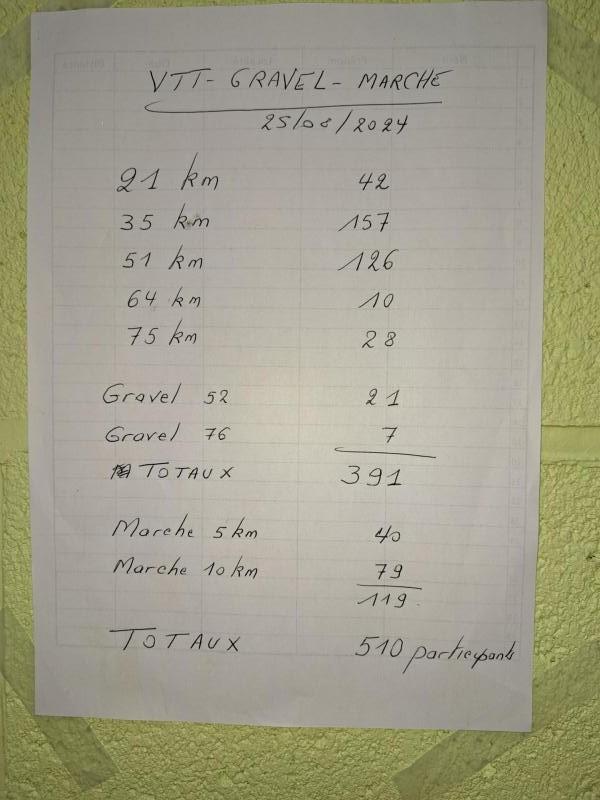 VTT - GRAVEL - MARCHE
25/08/2024
21 km 42
35 km 157
51 km 126
64 km 10
75 km 28
Gravel 52 21
Gravel 76 7
TOTAUX 391
Marche 5 km 40
Marche 10 km 79
119
TOTAUX 510 participants